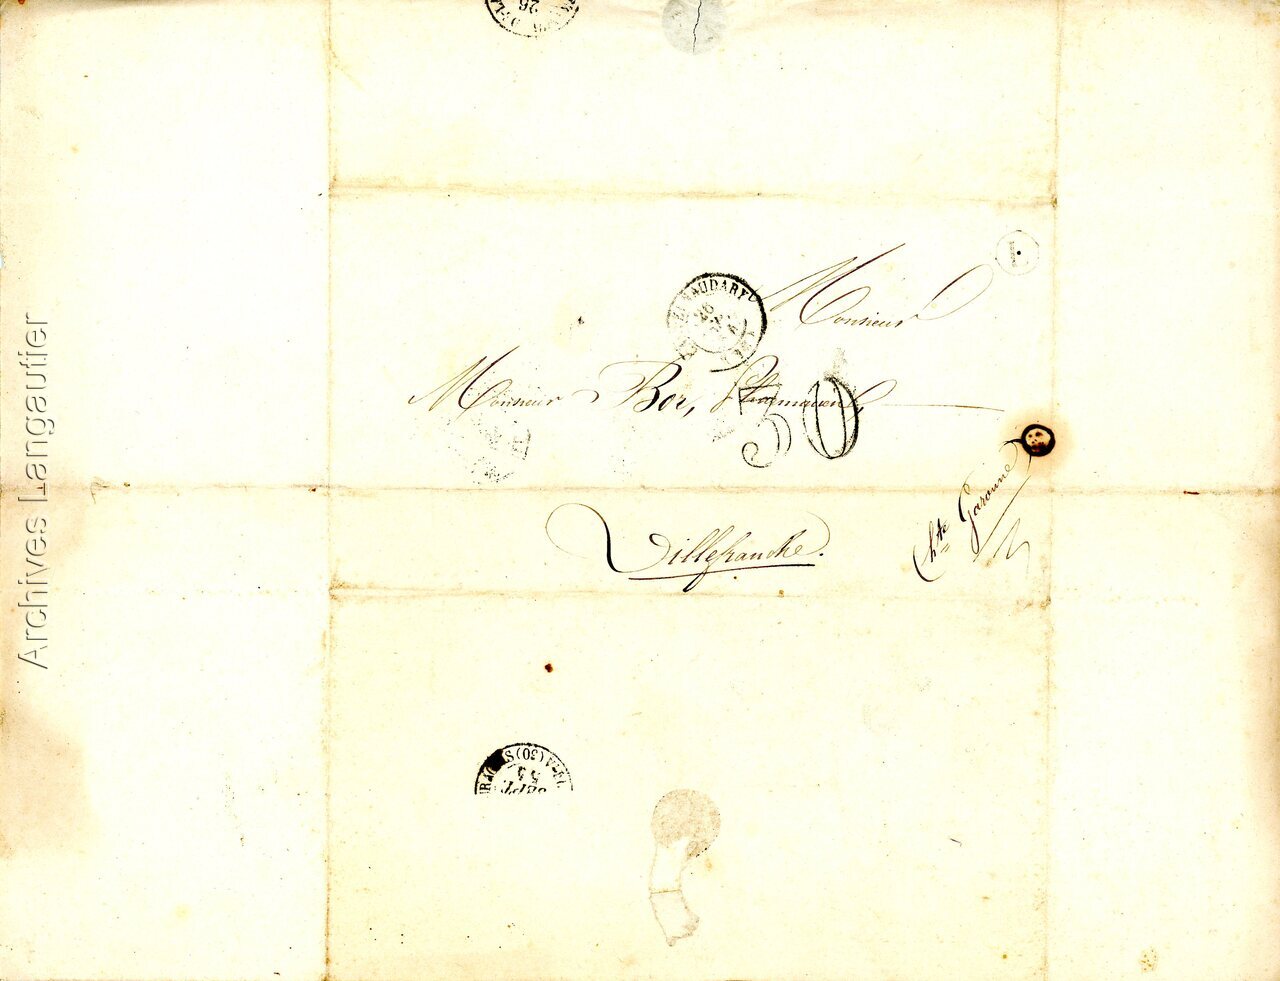 Monsieur
CASTELNAUDARY
Monsieur Bor, Pharmacien,
30
Villefranche.
Hte Garonne
SEPT.
54
(30)
26
Archives Langautier